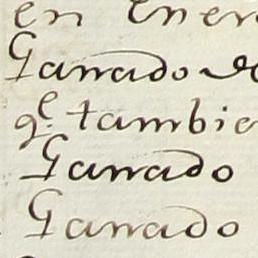 en Ener
Ganado de
q.e tambie
Ganado
Ganado